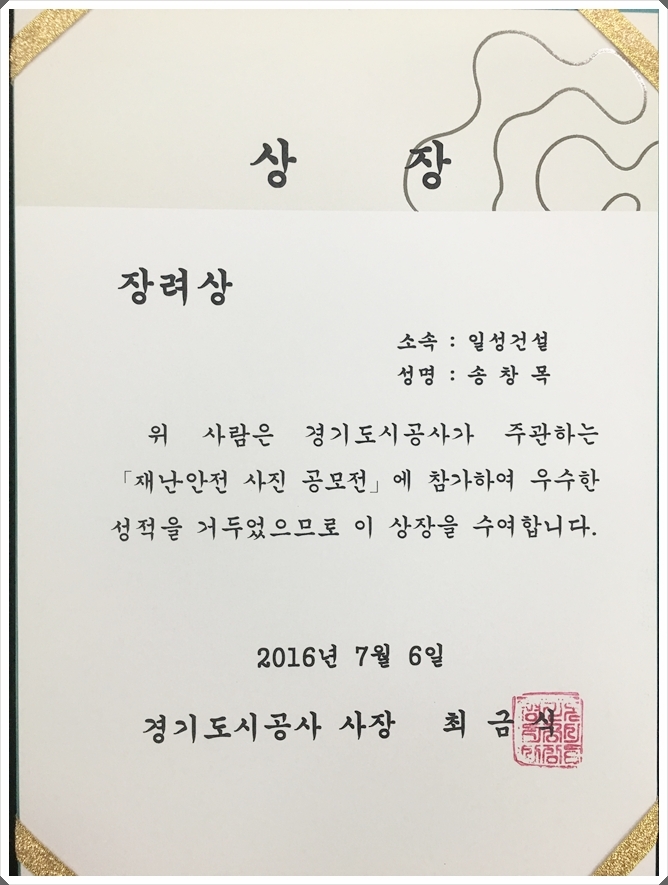 상 장
장려상
소속 : 일성건설
성명 : 송 창 목
위 사람은 경기도시공사가 주관하는
「재난안전 사진 공모전」에 참가하여 우수한
성적을 거두었으므로 이 상장을 수여합니다.
2016년 7월 6일
경기도시공사 사장 최 금 식